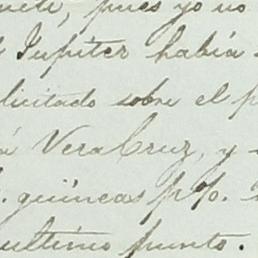 pues yo no
Jupiter había
licitado sobre el p
á VeraCruz, y
guineas p%.
ultimo punto.